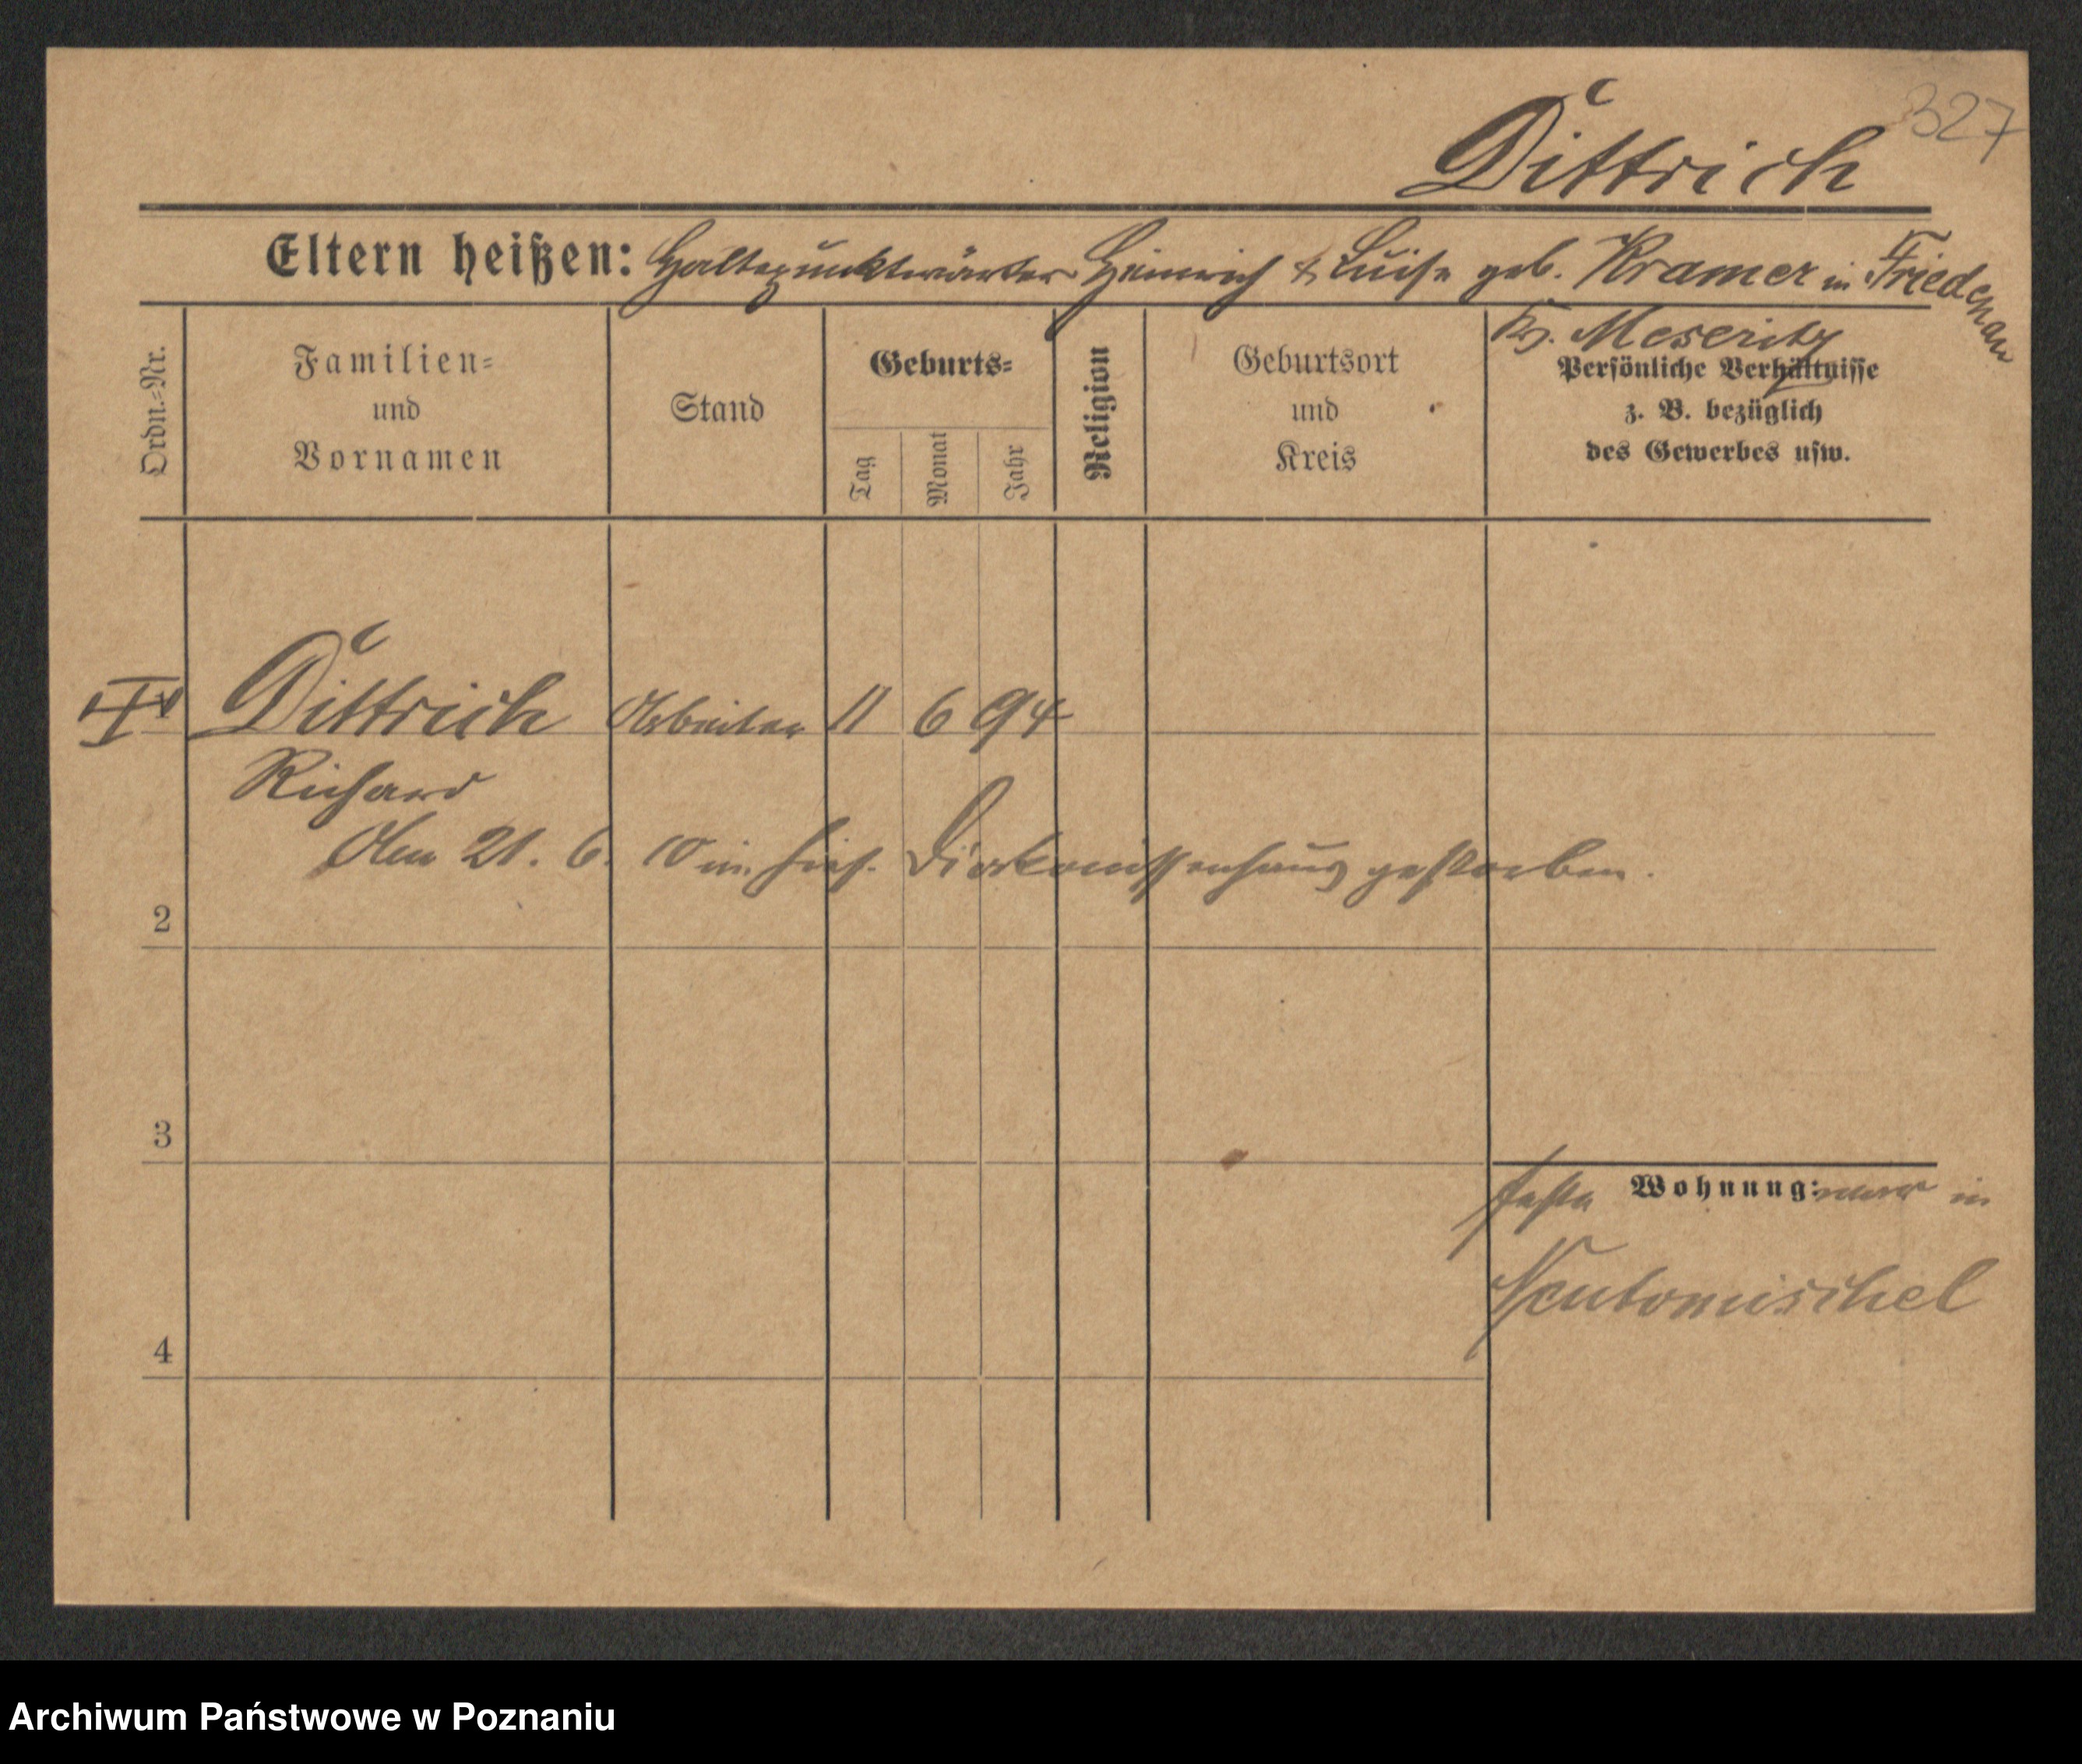 327
Dittrich
Eltern heißen: Haltepunktwärter Heinrich & Luise geb. Kramer in Friedenau
Kr. Meseritz
Ordn.-Nr.
Familien-
und
Vornamen
Stand
Geburts-
Tag
Monat
Jahr
Religion
Geburtsort
und
Kreis
Persönliche Verhältnisse
z. B. bezüglich
des Gewerbes usw.
Dittrich Arbeiter 11 6 94
Richard
Am 21. 6. 10 im hies. Diakonissenhaus gestorben.
2
3
feste Wohnung: war in
Neutomischel
4
Archiwum Państwowe w Poznaniu